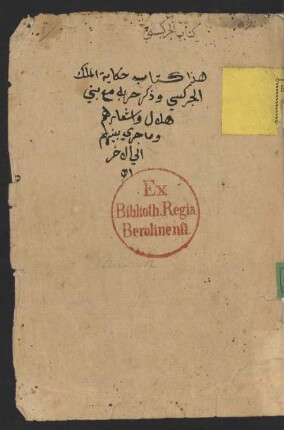 كتاب الجركسي
هذا كتاب حكاية الملك
الجركسي وذكر حربه مع بني
هلال واشعارهم
وما جري بينهم
الي الاخر
Ex
Biblioth. Regia
Berolinensi.